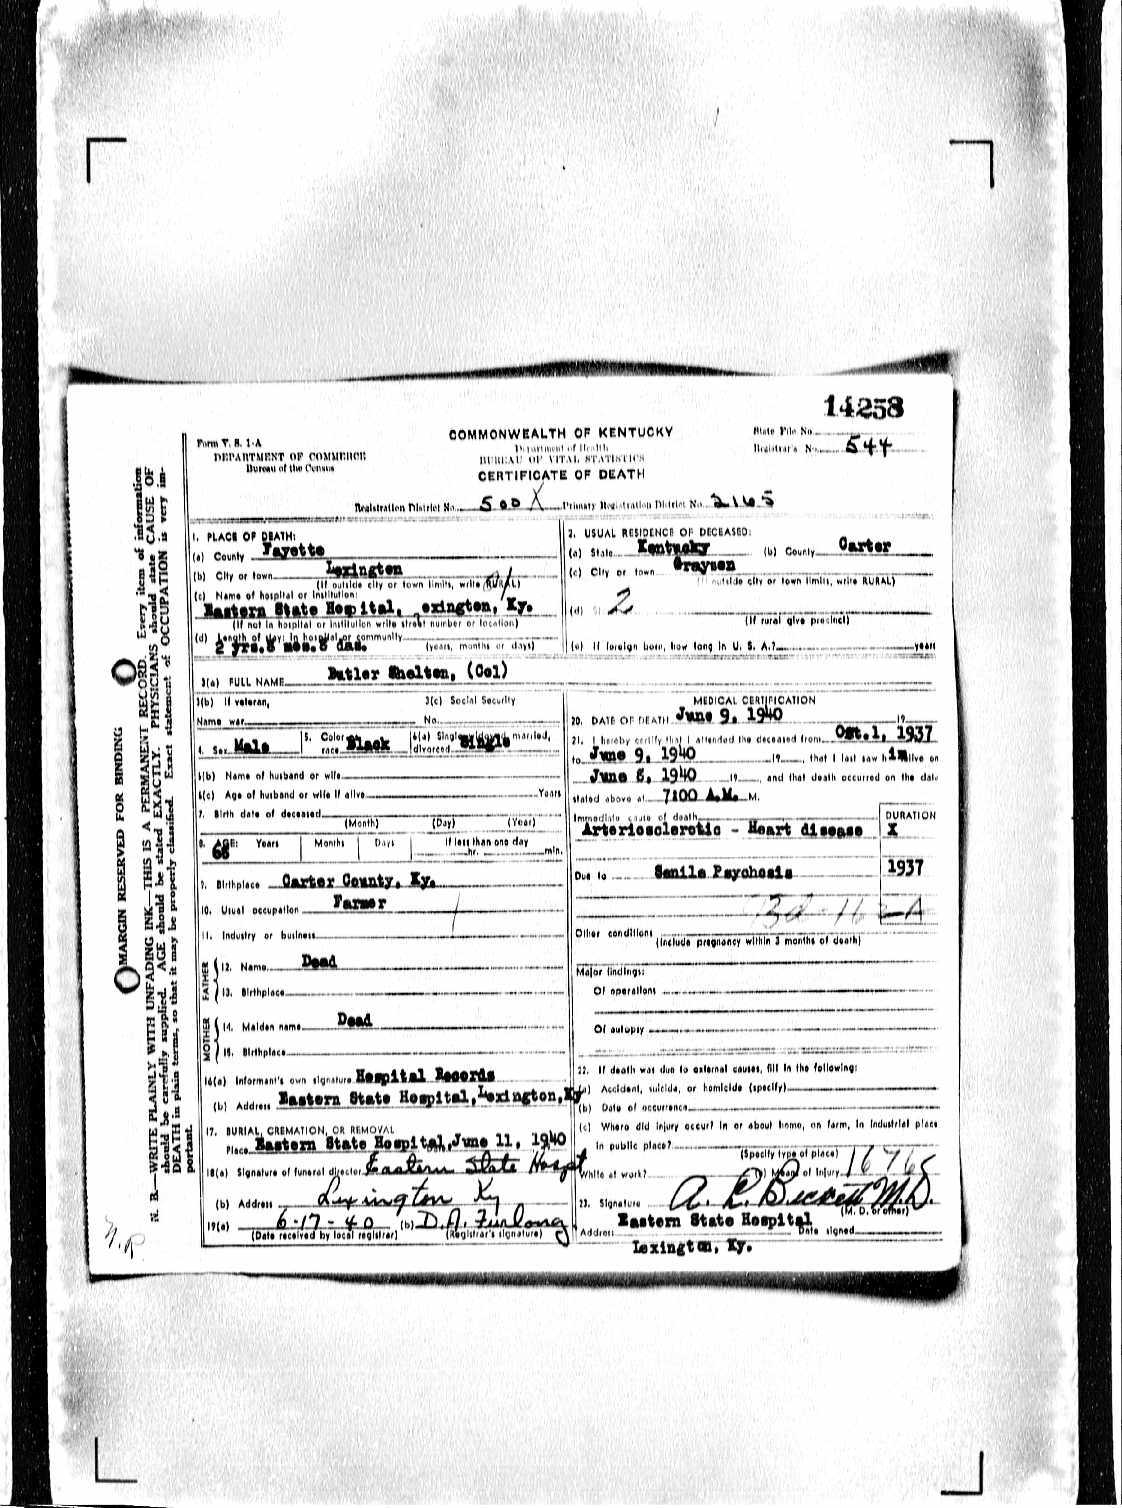 14258
Form V. S. 1-A
DEPARTMENT OF COMMERCE
Bureau of the Census
COMMONWEALTH OF KENTUCKY
Department of Health
BUREAU OF VITAL STATISTICS
CERTIFICATE OF DEATH
State File No.
Registrar's No. 544
Registration District No. 500 X Primary Registration District No. 2165
MARGIN RESERVED FOR BINDING
N. B.—WRITE PLAINLY WITH UNFADING INK—THIS IS A PERMANENT RECORD. Every item of information
should be carefully supplied. AGE should be stated EXACTLY. PHYSICIANS should state CAUSE OF
DEATH in plain terms, so that it may be properly classified. Exact statement of OCCUPATION is very im-
portant.
1. PLACE OF DEATH:
(a) County Fayette
(b) City or town Lexington
(If outside city or town limits, write RURAL)
(c) Name of hospital or institution:
Eastern State Hospital, Lexington, Ky.
(If not in hospital or institution write street number or location)
(d) Length of stay: In hospital or community
2 yrs. 8 mos. 8 das. (years, months or days)
2. USUAL RESIDENCE OF DECEASED:
(a) State Kentucky (b) County Carter
(c) City or town Grayson
(If outside city or town limits, write RURAL)
(d) 2
(If rural give precinct)
(e) If foreign born, how long in U. S. A.? years
3(a) FULL NAME Butler Shelton, (Col)
3(b) If veteran, 3(c) Social Security
Name war No.
4. Sex Male 5. Color race Black 6(a) Single, widowed, married, divorced Single
6(b) Name of husband or wife
6(c) Age of husband or wife if alive Years
7. Birth date of deceased
(Month) (Day) (Year)
8. AGE: Years Months Days If less than one day
hr. min.
9. Birthplace Carter County, Ky.
10. Usual occupation Farmer
11. Industry or business
FATHER
12. Name Dead
13. Birthplace
MOTHER
14. Maiden name Dead
15. Birthplace
16(a) Informant's own signature Hospital Records
(b) Address Eastern State Hospital, Lexington, Ky
17. BURIAL, CREMATION, OR REMOVAL
Place Eastern State Hospital, June 11, 1940
18(a) Signature of funeral director Eastern State Hospt
(b) Address Lexington Ky
19(a) 6-17-40 (b) D. A. Furlong
(Date received by local registrar) (Registrar's signature)
MEDICAL CERTIFICATION
20. DATE OF DEATH June 9, 1940 19
21. I hereby certify that I attended the deceased from Oct. 1, 1937
to June 9, 1940 19 , that I last saw him alive on
June 8, 1940 19 , and that death occurred on the date
stated above at 7:00 A.M. M.
Immediate cause of death DURATION
Arteriosclerotic - Heart disease X
Due to Senile Psychosis 1937
Other conditions
(Include pregnancy within 3 months of death)
Major findings:
Of operations
Of autopsy
22. If death was due to external causes, fill in the following:
(a) Accident, suicide, or homicide (specify)
(b) Date of occurrence
(c) Where did injury occur? In or about home, on farm, in industrial place
in public place?
(Specify type of place)
While at work? (e) Means of Injury 16765
23. Signature A. L. Beckett M.D.
(M. D. or other)
Eastern State Hospital
Address Date signed
Lexington, Ky.
N.R.